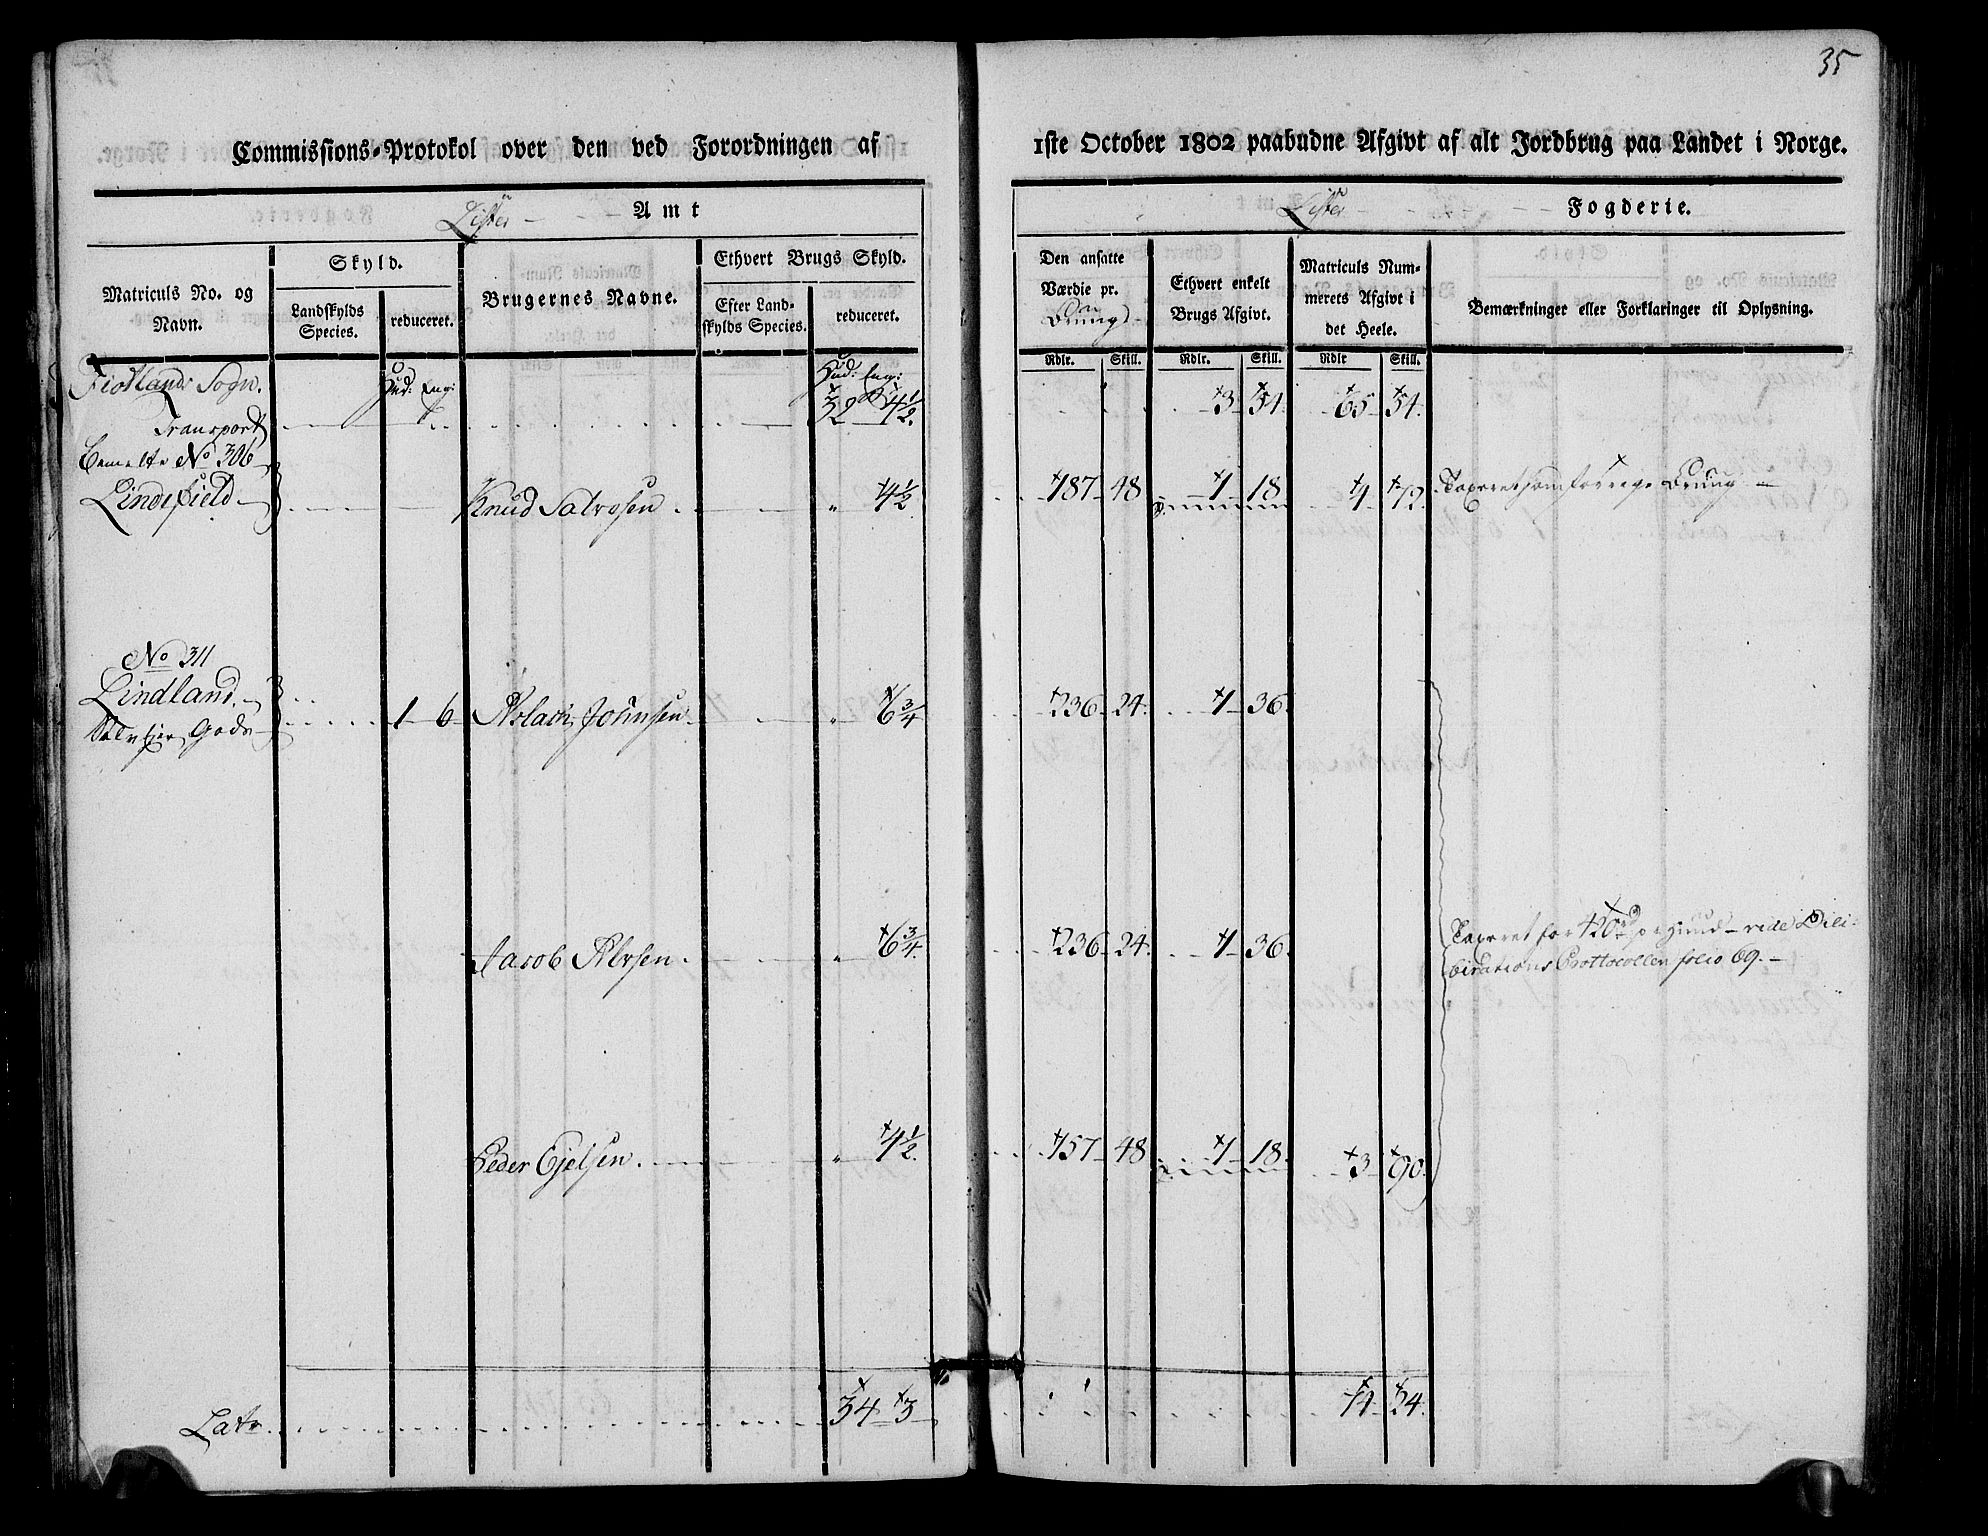 35
Commissions-Protokol over den ved Forordningen af
1ste October 1802 paabudne Afgivt af alt Jordbrug paa Landet i Norge.
Lister Amt
Lister Fogderie.
Matriculs No. og Navn.
Skyld.
Landskylds Species.
reduceret.
Brugernes Navne.
Ethvert Brugs Skyld.
Efter Landskylds Species.
reduceret.
Den ansatte Værdie pr.
Ethvert enkelt Brugs Afgivt.
Matriculs Nummerets Afgivt i det Heele.
Bemærkninger eller Forklaringer til Oplysning.
Rdlr. Skill. Rdlr. Skill. Rdlr Skill.
Fiotlands Sogn. Hud: Eng: Hud: Eng:
Transport 32 4½. 3 54 65 54.
No 306
Lindefield Knud Salvesen " 4½ 187 48 1 18 4 72.
No 311
Lindland. 1 6 Aslach Johnsen " 6¾ 236 24. 1 36
Gods
Jacob Alvsen. " 6¾. 236 24. 1 36. Taxeret for 420 rd pr Huud vide Deli-
birations Protocollen folio 69.
Peder Ejelsen. " 4½. 157 48 1 18. 3 90.
Latr. 34 3 74 24.